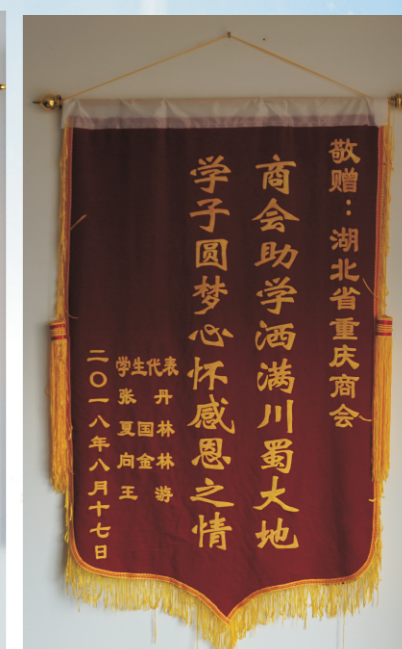 敬赠：湖北省重庆商会
商会助学洒满川蜀大地
学子圆梦心怀感恩之情
学生代表
张 丹
夏国林
向金林
王 游
二〇一八年八月十七日